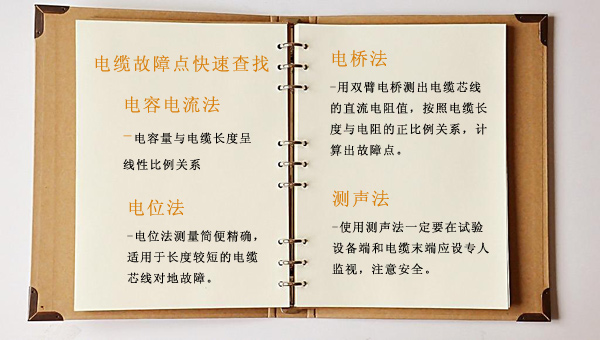 电缆故障点快速查找
电容电流法
一电容量与电缆长度呈
线性比例关系
电位法
-电位法测量简便精确，
适用于长度较短的电缆
芯线对地故障。
电桥法
-用双臂电桥测出电缆芯线
的直流电阻值，按照电缆长
度与电阻的正比例关系，计
算出故障点。
测声法
-使用测声法一定要在试验
设备端和电缆末端应设专人
监视，注意安全。